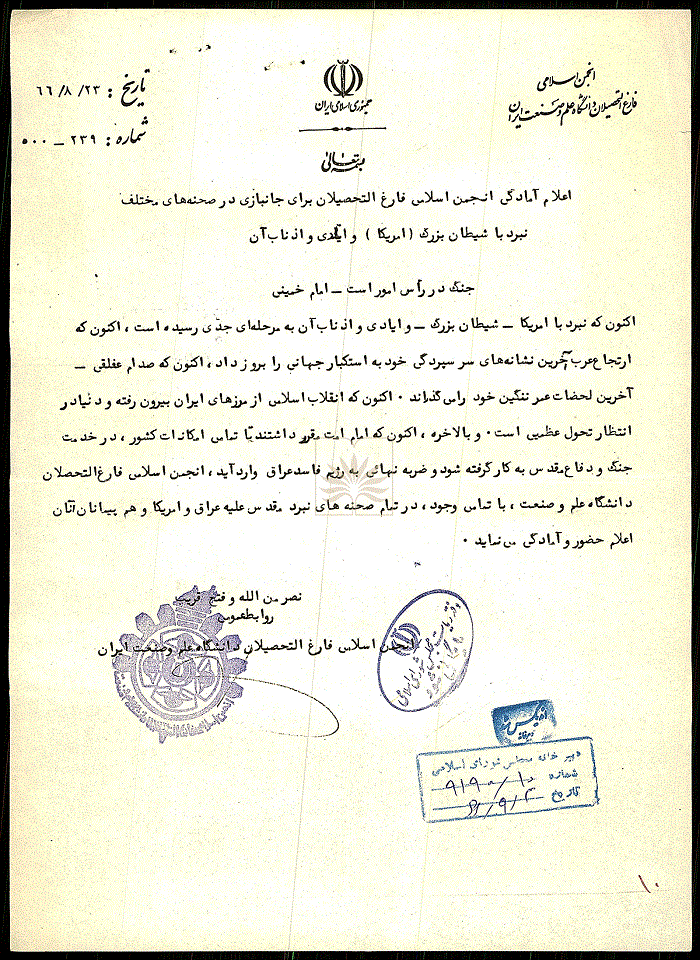 انجمن اسلامی
فارغ التحصیلان دانشگاه علم و صنعت ایران
جمهوری اسلامی ایران
تاریخ : ۶۶/۸/۲۳
شماره : ۲۳۹ ــ ۵۰۰
بسمه تعالی
اعلام آمادگی انجمن اسلامی فارغ التحصیلان برای جانبازی در صحنه‌های مختلف
نبرد با شیطان بزرگ (امریکا ) و ایادی و اذناب آن
جنگ در رأس امور است ــ امام خمینی
اکنون که نبرد با امریکا ــ شیطان بزرگ ــ و ایادی و اذناب آن به مرحله‌ای جدی رسیده است ، اکنون که
ارتجاع عرب آخرین نشانه‌های سر سپردگی خود به استکبار جهانی را بروز داد ، اکنون که صدام عفلقی ــ
آخرین لحضات عمر ننگین خود را می گذراند ۰ اکنون که انقلاب اسلامی از مرزهای ایران بیرون رفته و دنیا در
انتظار تحول عظیمی است ۰ و بالاخره ، اکنون که امام امت مقرر داشتند با تمامی امکانات کشور ، در خدمت
جنگ و دفاع مقدس به کار گرفته شود و ضربه نهائی به رژیم فاسد عراق وارد آید ، انجمن اسلامی فارغ التحصلان
دانشگاه علم و صنعت ، با تمامی وجود ، در تمام صحنه های نبرد مقدس علیه عراق و امریکا و هم پیمانان آنان
اعلام حضور و آمادگی می نماید ۰
نصر من الله و فتح قریب
روابط عمومی
انجمن اسلامی فارغ التحصیلان دانشگاه علم و صنعت ایران
دبیر خانه مجلس شورای اسلامی
شماره
تاریخ
۱۰